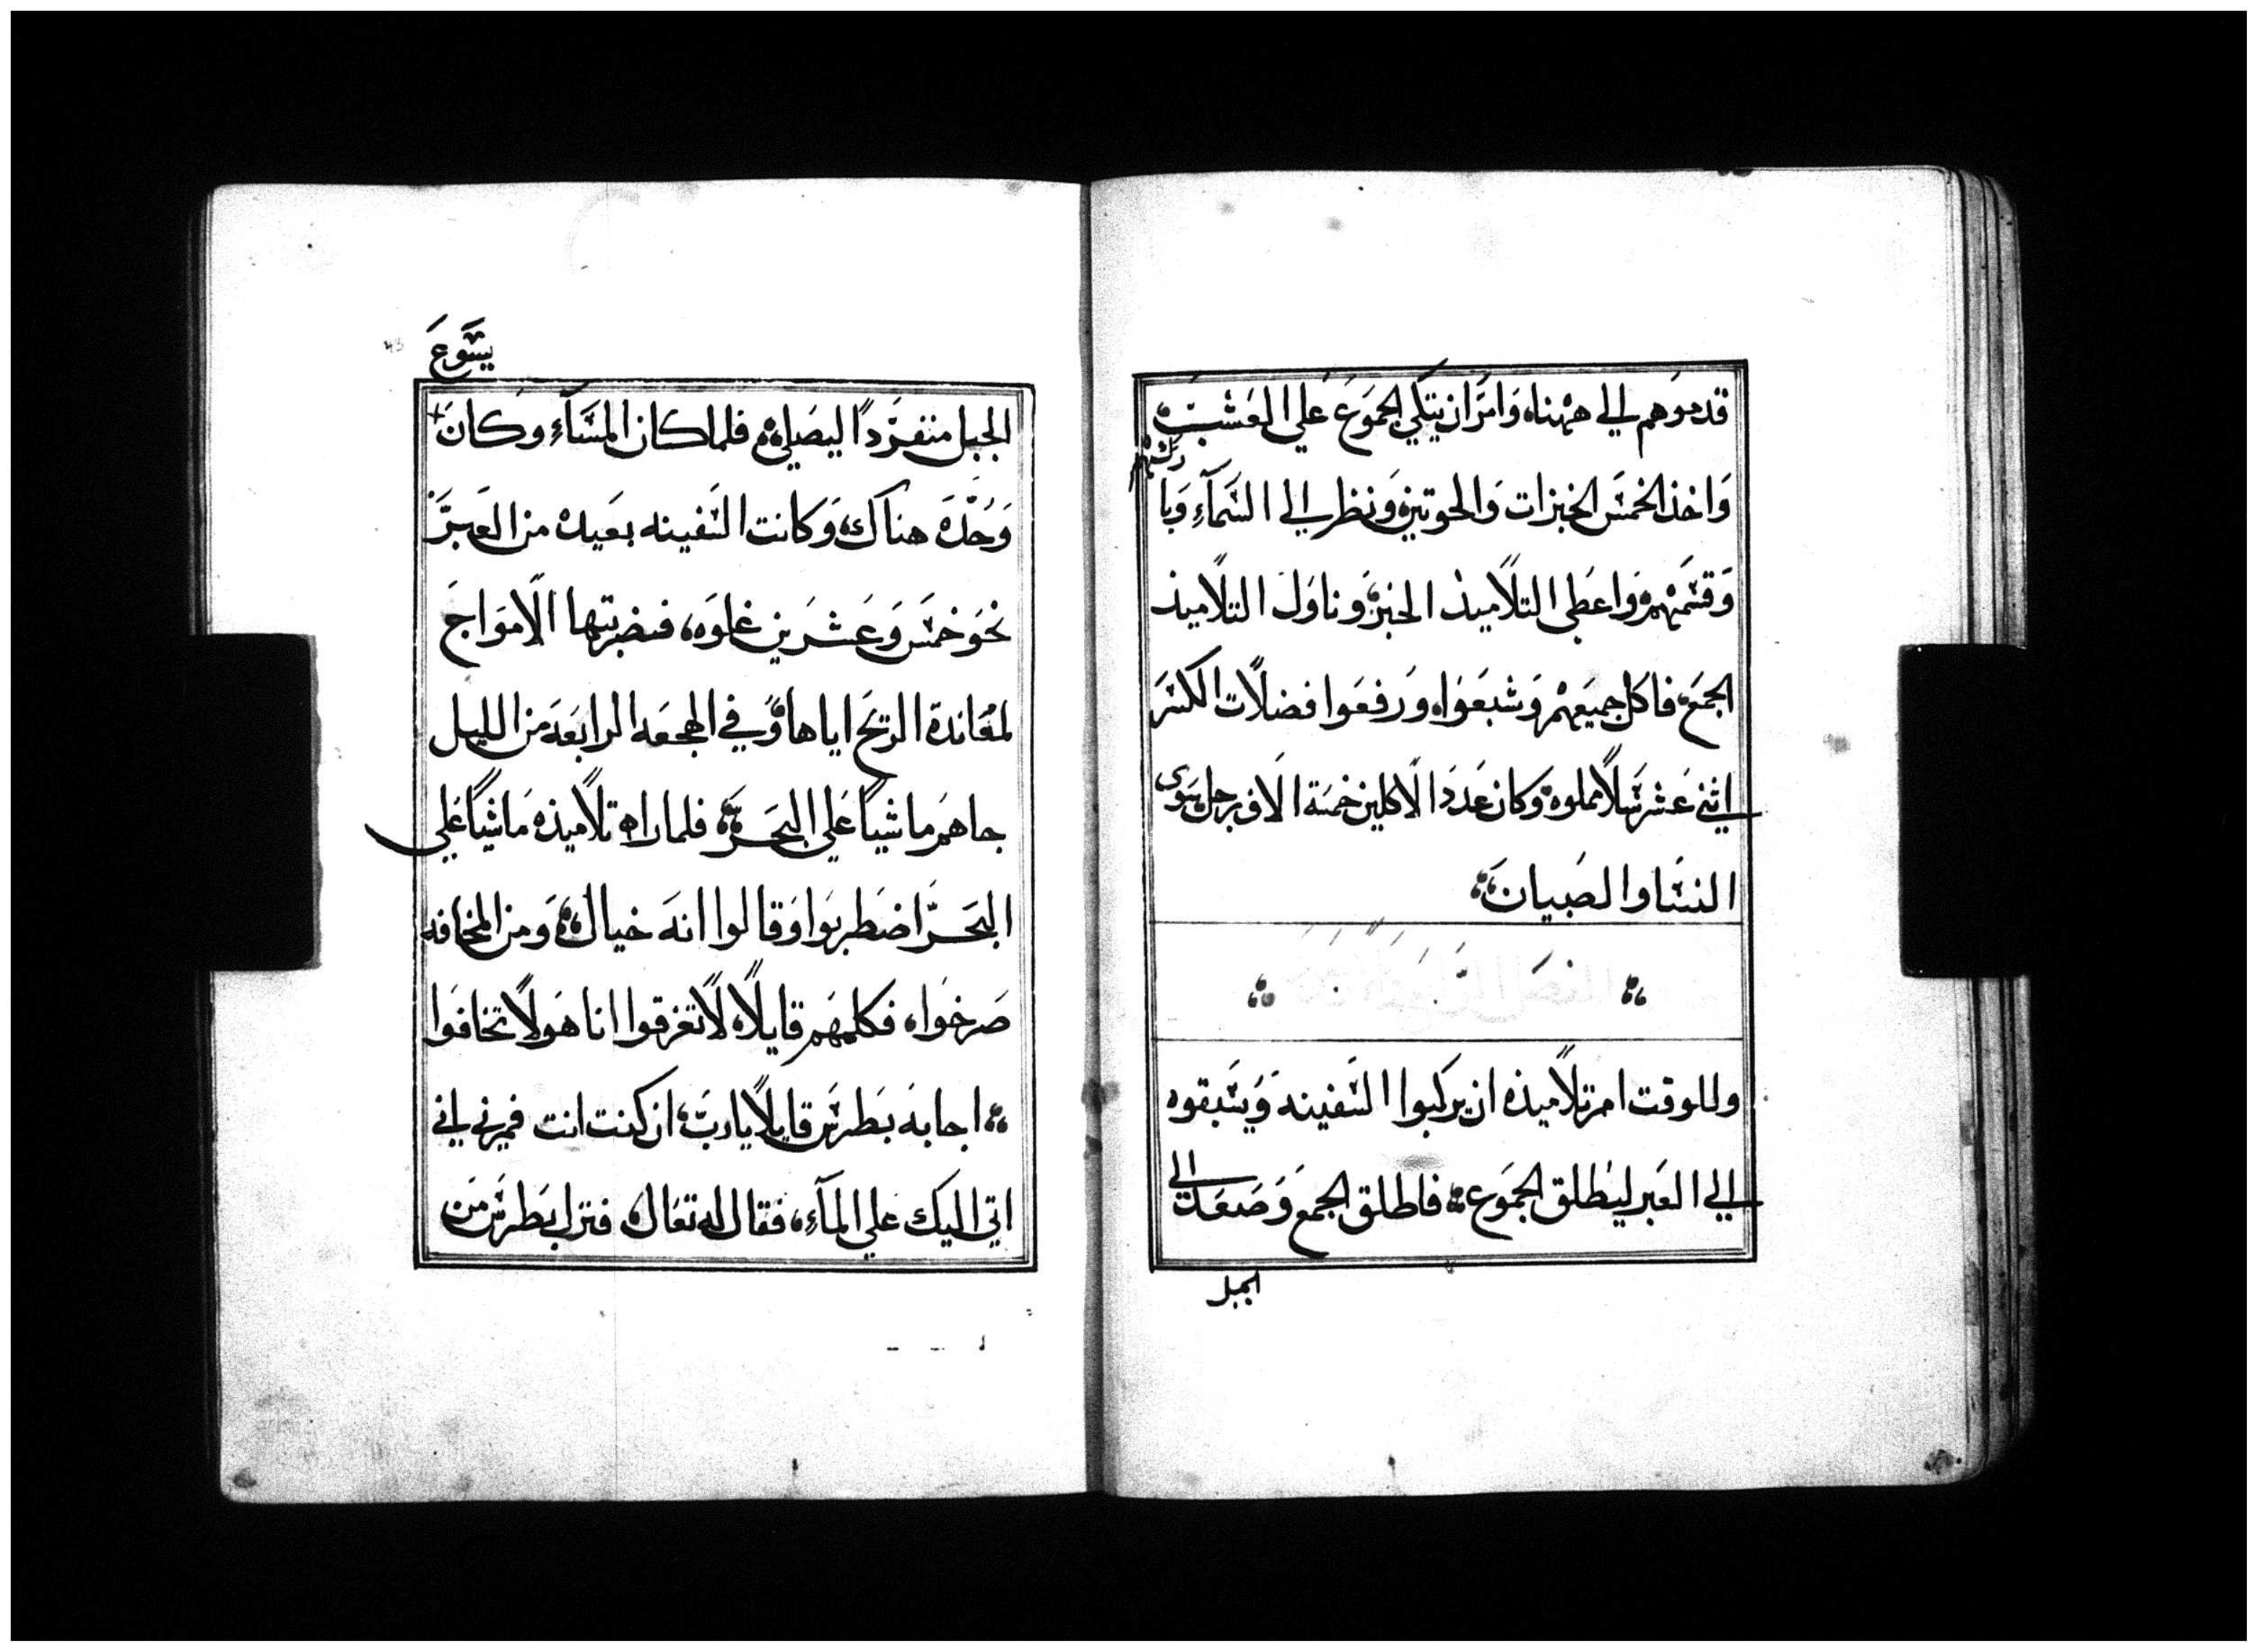 قدموهم الي ههناه وَامَرَ ان يتكي الجموَعَ عَلي العَشبَ
وَاخذ الخمسَ الخبزات وَالحوتين وَنظر الي السَمآءِ وَبا
ركهم
وَقسَمهم وَاعطي التلاميذ الخبز وناوَل التلاميذ
الجمعَ فاكل جميعَهم وَشبعَواه وَرفعَوا فضلات الكسَر
اثني عَشر سَلاً مملوه وَكان عَددَ الاكلين خمسَة الاف رجل سَوي
النسَا والصَبيان
وللوقت امر تلاميذه ان يركبوا السَفينه وَيسَبقوه
الي العَبر ليطلق الجموَع فاطلق الجمعَ وَصَعَد الي
الجبل
يسَوعَ
الجبل منفرَداً ليصَلي فلما كان المسَآءِ وكانَ
وَحْدَهَ هناك وَكانت السَفينه بعَيده من العَبرَ
نحوَ خمسَ وَعَشرَين غلوَه فضربتها الامَوَاجَ
لمعَاندة الريَح اياها وَفي الهجعَه الرابعَة مَن الليل
جاهمَ ماشياً عَلي البحَرَ فلما راه تلاميذه مَاشياً عَلي
البحَرَ اضطربوَا وَقالوا انهَ خيال وَمن المخافه
صَرخوَاه فكلمهَم قايلاه لا تغرقوا انا هوَ لا تخافوَا
اجابهَ بَطرسَ قايلاً ياربَ ان كنت انت فمرني اني
اتي اليك عَلي المآءِ فقال له تعَال فنزل بَطرسَ مَن